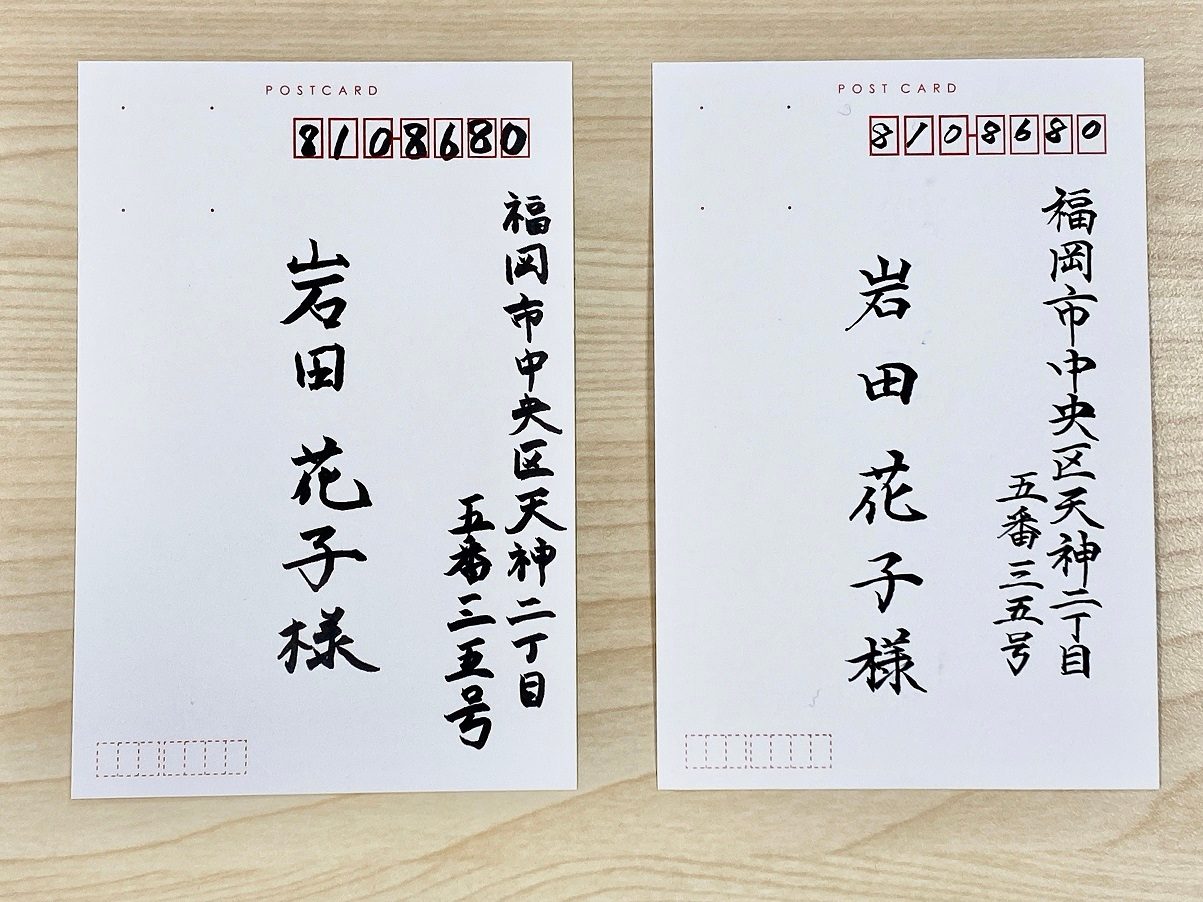 POSTCARD
8108680
福岡市中央区天神二丁目
五番三五号
岩田花子様
POST CARD
8108680
福岡市中央区天神二丁目
五番三五号
岩田花子様